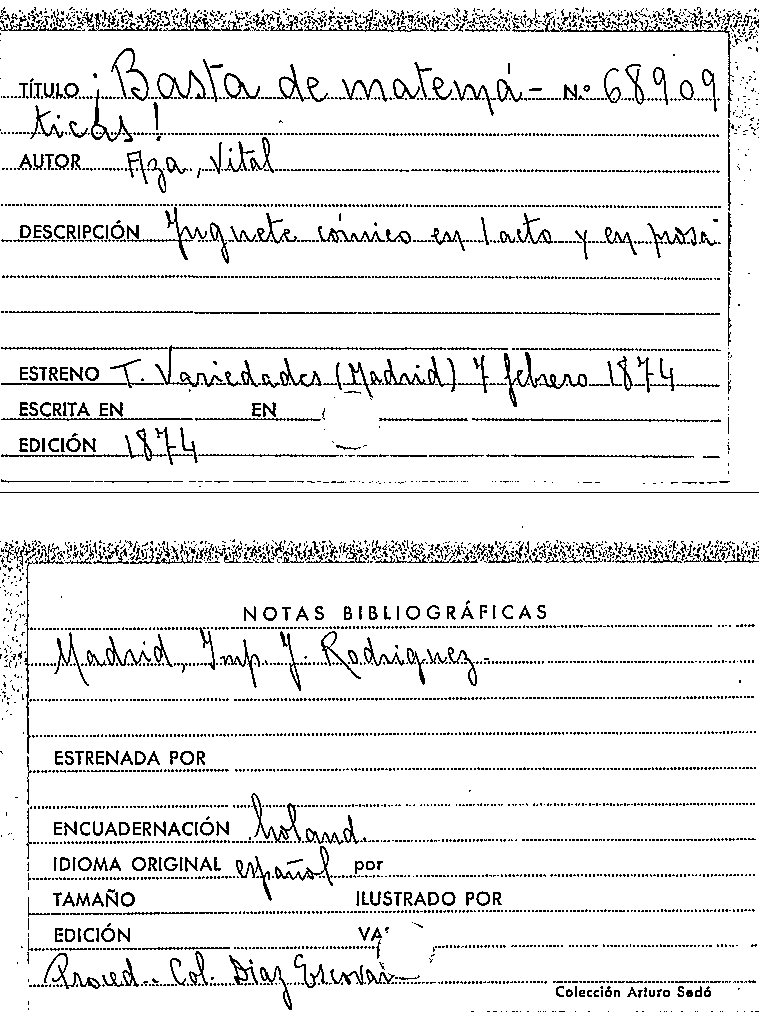 TÍTULO ¡Basta de matemá- N.º 68909
ticas!
AUTOR Aza, Vital
DESCRIPCIÓN Juguete cómico en 1 acto y en prosa
ESTRENO T. Variedades (Madrid) 7 febrero 1874
ESCRITA EN EN
EDICIÓN 1874
NOTAS BIBLIOGRÁFICAS
Madrid, Imp. J. Rodriguez.
ESTRENADA POR
ENCUADERNACIÓN holand.
IDIOMA ORIGINAL español por
TAMAÑO ILUSTRADO POR
EDICIÓN
Proced. Col. Diaz Escovar
Colección Arturo Sedó